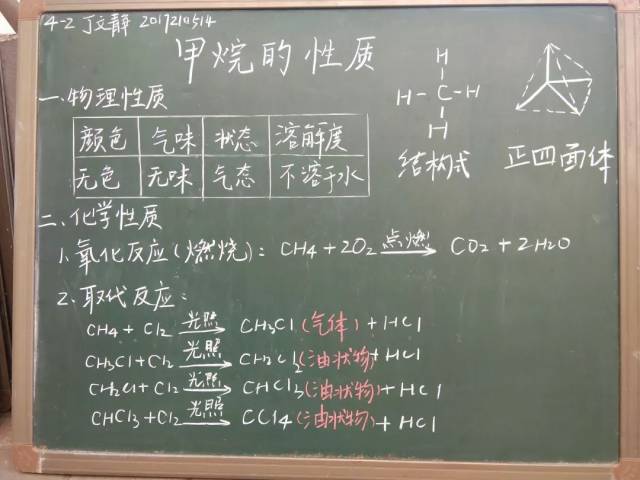 4-2 丁文静 2017210514
甲烷的性质
一、物理性质
颜色 气味 状态 溶解度
无色 无味 气态 不溶于水
H
H-C-H
H
结构式
正四面体
二、化学性质
1.氧化反应(燃烧): CH4+2O2 点燃 CO2+2H2O
2.取代反应:
CH4+Cl2 光照 CH3Cl(气体)+HCl
CH3Cl+Cl2 光照 CH2Cl2(油状物)+HCl
CH2Cl+Cl2 光照 CHCl3(油状物)+HCl
CHCl3+Cl2 光照 CCl4(油状物)+HCl